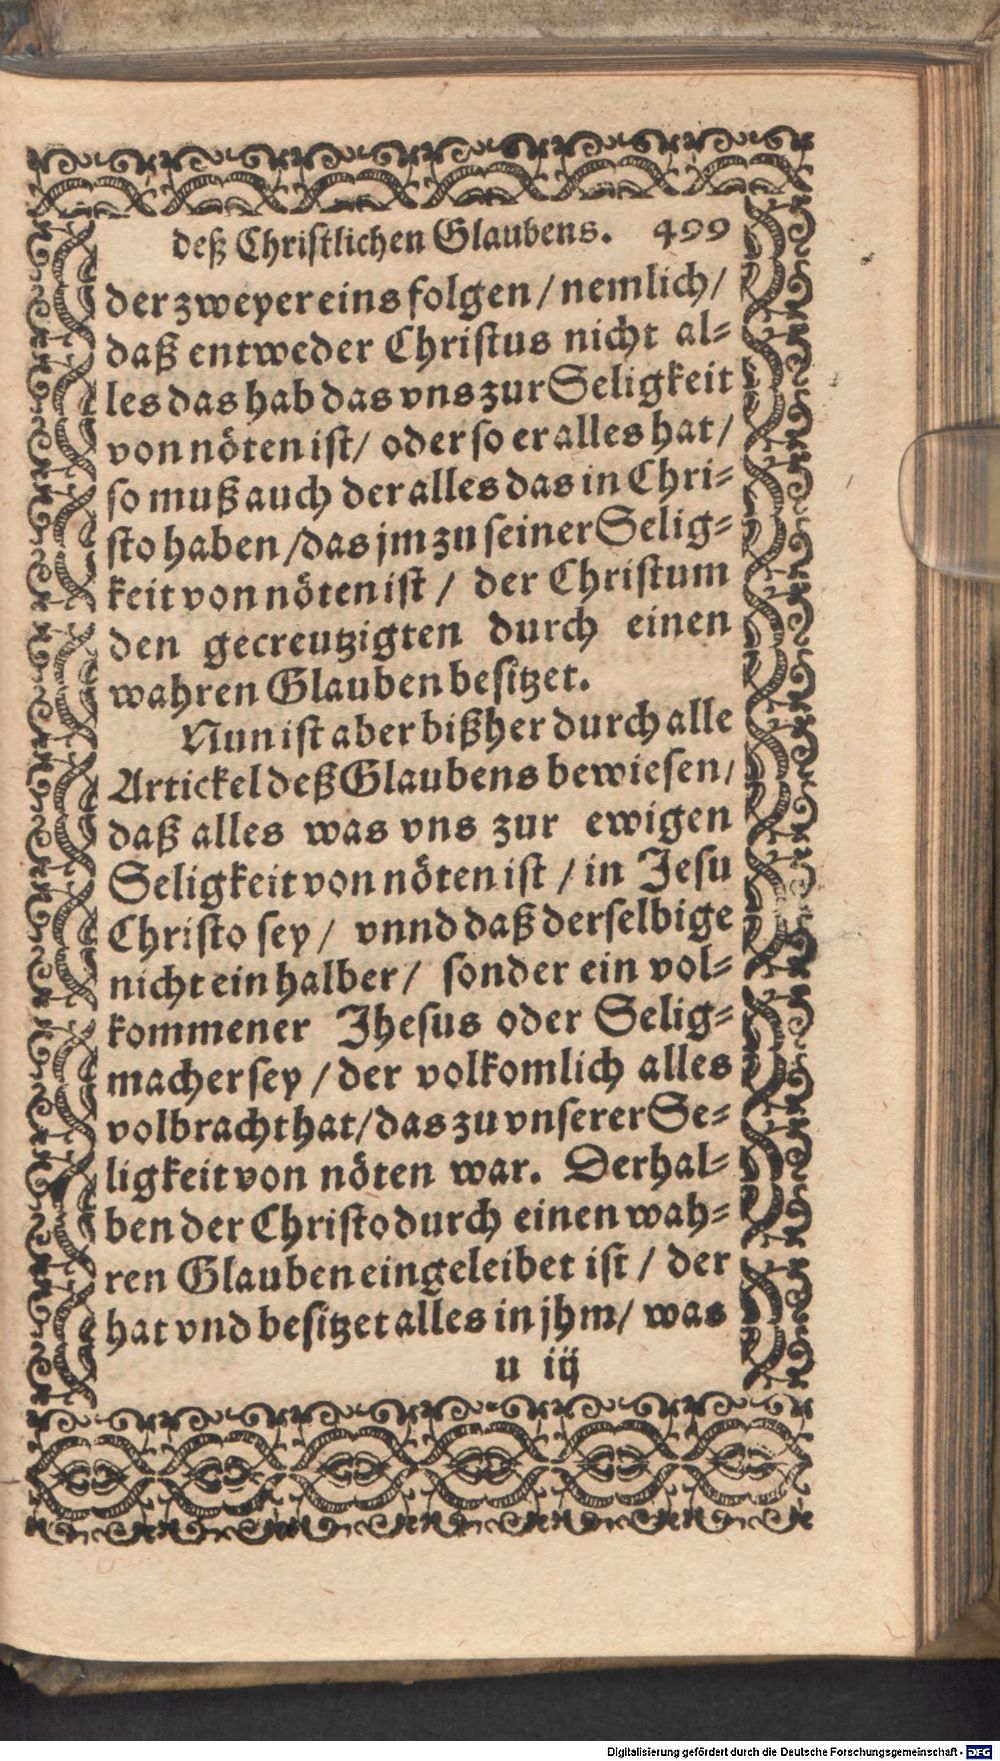 deß Christlichen Glaubens. 499
der zweyer eins folgen / nemlich /
daß entweder Christus nicht al⸗
les das hab das vns zur Seligkeit
von nöten ist / oder so er alles hat /
so muß auch der alles das in Chri⸗
sto haben / das jm zu seiner Selig⸗
keit von nöten ist / der Christum
den gecreutzigten durch einen
wahren Glauben besitzet.
Nun ist aber bißher durch alle
Artickel deß Glaubens bewiesen /
daß alles was vns zur ewigen
Seligkeit von nöten ist / in Jesu
Christo sey / vnnd daß derselbige
nicht ein halber / sonder ein vol⸗
kommener Jhesus oder Selig⸗
macher sey / der volkomlich alles
volbracht hat / das zu vnserer Se⸗
ligkeit von nöten war. Derhal⸗
ben der Christo durch einen wah⸗
ren Glauben eingeleibet ist / der
hat vnd besitzet alles in jhm / was
u iij
Digitalisierung gefördert durch die Deutsche Forschungsgemeinschaft - DFG